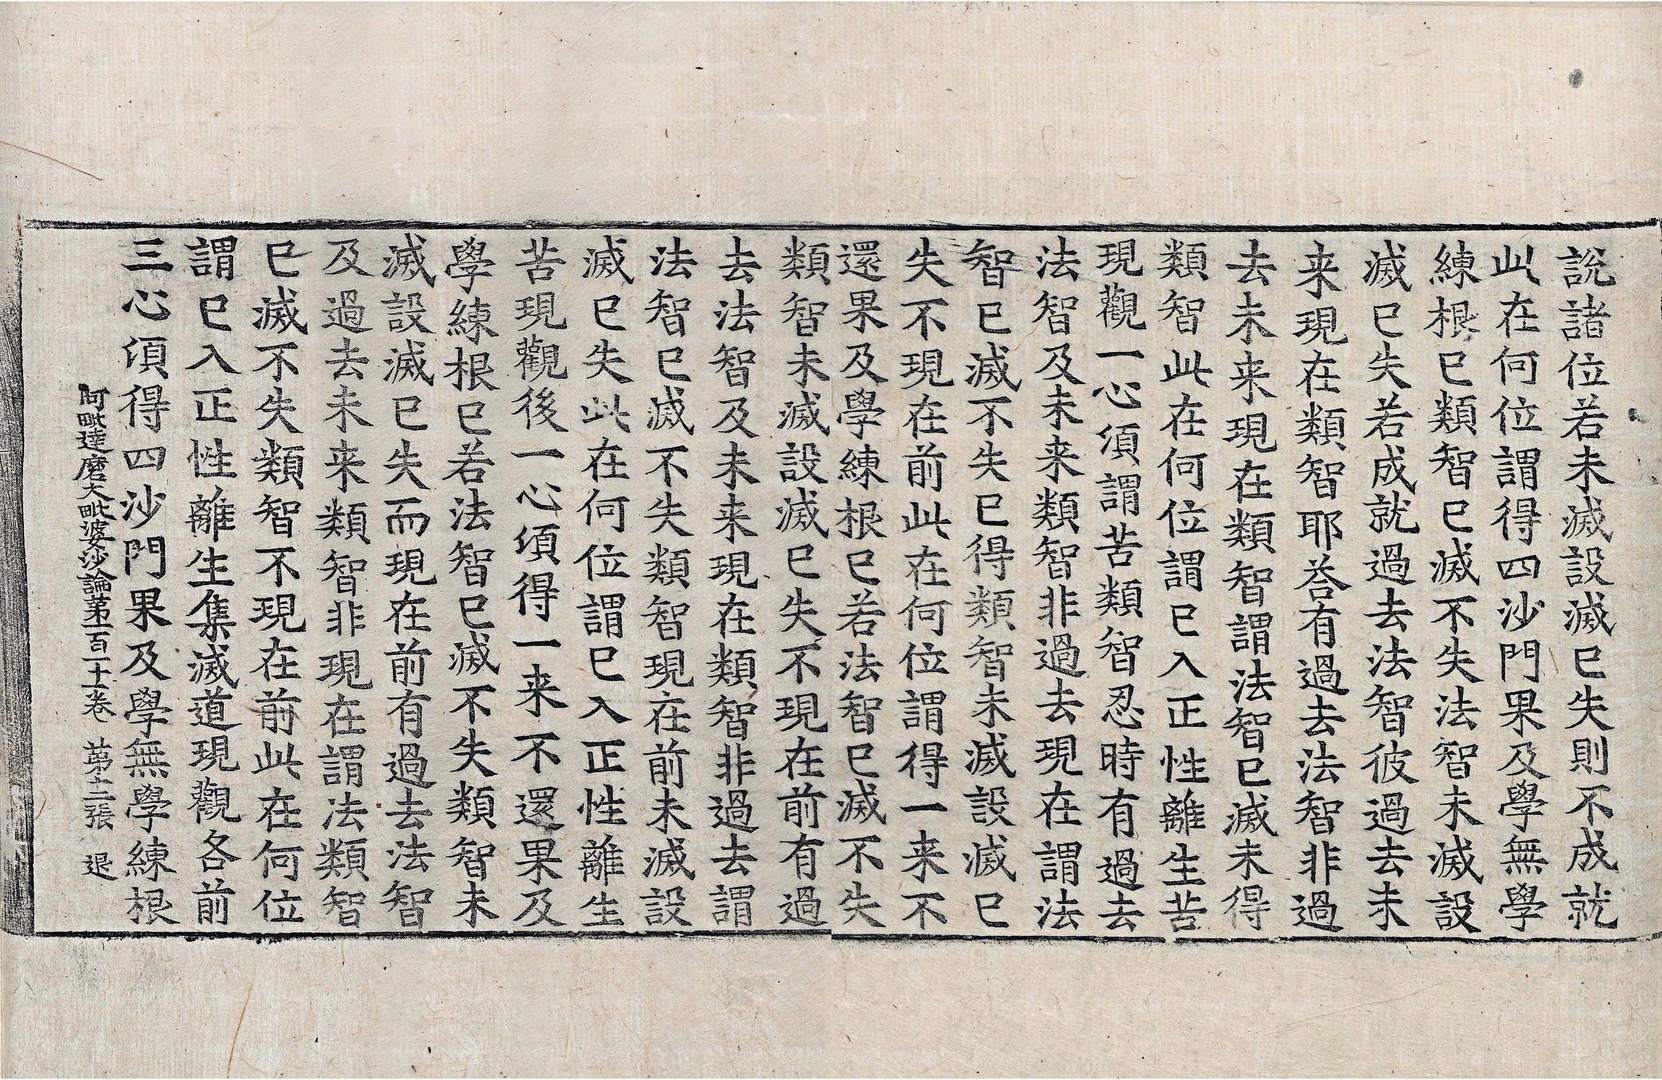 說諸位若未滅設滅已失則不成就
此在何位謂得四沙門果及學無學
練根已類智已滅不失法智未滅設
滅已失若成就過去法智彼過去未
来現在類智耶荅有過去法智非過
去未来現在類智謂法智已滅未得
類智此在何位謂已入正性離生苦
現觀一心湏謂苦類智忍時有過去
法智及未来類智非過去現在謂法
智已滅不失已得類智未滅設滅已
失不現在前此在何位謂得一来不
還果及學練根已若法智已滅不失
類智未滅設滅已失不現在前有過
去法智及未来現在類智非過去謂
法智已滅不失類智現在前未滅設
滅已失此在何位謂已入正性離生
苦現觀後一心湏得一来不還果及
學練根已若法智已滅不失類智未
滅設滅已失而現在前有過去法智
及過去未来類智非現在謂法類智
已滅不失類智不現在前此在何位
謂已入正性離生集滅道現觀各前
三心湏得四沙門果及學無學練根
阿毗達磨大毗婆沙論苐一百十一卷 苐十二張 退